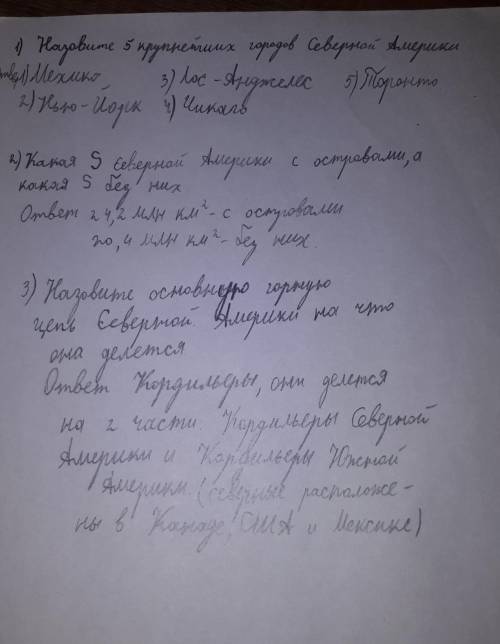 1) Назовите 5 крупнейших городов Северной Америки
Ответ 1) Мехико 3) Лос-Анджелес 5) Торонто
2) Нью-Йорк 4) Чикаго
2) Какая S Северной Америки с островами, а
какая S без них
Ответ 24,2 млн км²- с островами
20,4 млн км²-без них.
3) Назовите основную горную
цепь Северной Америки на что
она делется
Ответ Кордильеры, они делется
на 2 части. Кордильеры Северной
Америки и Кордильеры Южной
Америки. (северные расположе-
ны в Канаде, США и Мексике)